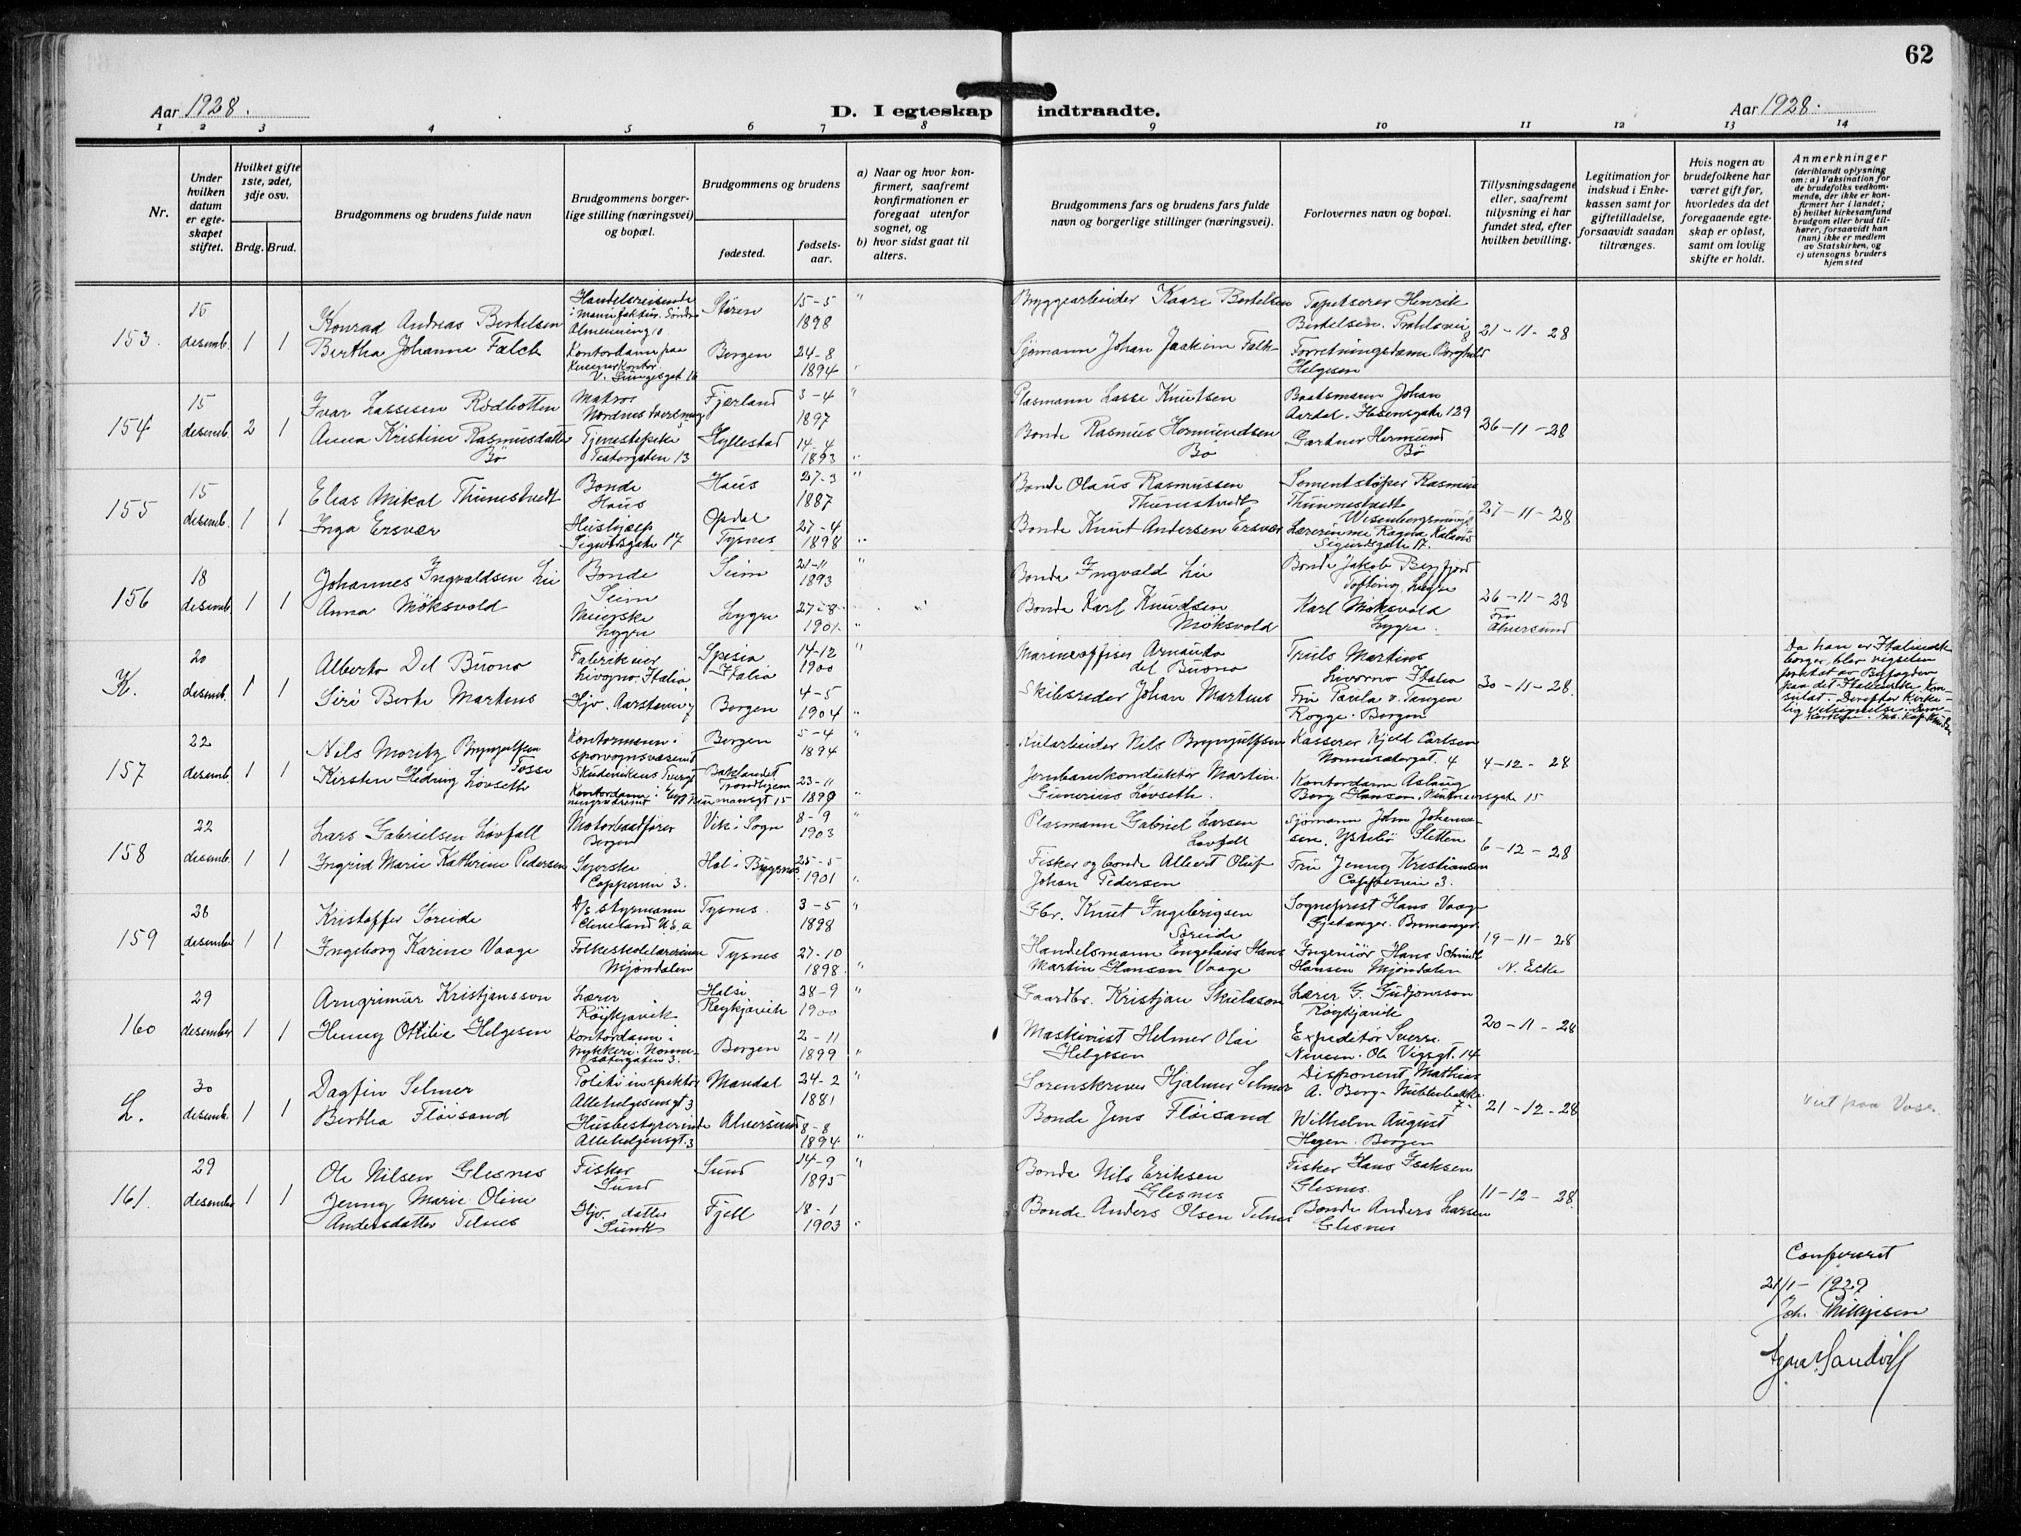 62
Aar 1928.
D. I egteskap indtraadte.
Aar 1928.
1 2 3 4 5 6 7 8 9 10 11 12 13 14
Nr.
Under hvilken datum er egteskapet stiftet.
Hvilket gifte 1ste, 2det, 3dje osv.
Brdg. Brud.
Brudgommens og brudens fulde navn
Brudgommens borgerlige stilling (næringsvei) og bopæl.
Brudgommens og brudens
fødested.
fødselsaar.
a) Naar og hvor konfirmert, saafremt konfirmationen er foregaat utenfor sognet, og
b) hvor sidst gaat til alters.
Brudgommens fars og brudens fars fulde navn og borgerlige stillinger (næringsvei).
Forlovernes navn og bopæl.
Tillysningsdagene eller, saafremt tillysning ei har fundet sted, efter hvilken bevilling.
Legitimation for indskud i Enkekassen samt for giftetilladelse, forsaavidt saadan tiltrænges.
Hvis nogen av brudefolkene har været gift før, hvorledes da det foregaaende egteskap er opløst, samt om lovlig skifte er holdt.
Anmerkninger
(deriblandt oplysning om: a) Vaksination for de brudefolks vedkommende, der ikke er konfirmert her i landet;
b) hvilket kirkesamfund brudgom eller brud tilhører, forsaavidt han (hun) ikke er medlem av Statskirken, og
c) utensogns bruders hjemsted
153. 15 desemb. 1 1
Konrad Andreas Bertelsen
Bertha Johanne Falch
Handelsreisende
i manufaktur. Søndre
Almenning 10.
Kontordame paa
Kemnerkontor.
Støren 15-5 1898 "
Bergen 24-8 1894 "
Bryggearbeider Kaare Bertelsen
Sjømann Johan Joakim Falk
Tapetserer Henrik
Bertelsen.
Forretningsdame Borghild
Helgesen
21-11-28
154 15 desemb. 2 1
Ivar Lassesen Rødbotten
Anna Kristine Rasmusdatter
Bø
Matros
Tjenestepike
Teatergaten 13
Fjærland 3-4 1897 "
Hyllestad 14-4 1893 "
Plasmann Lasse Knutsen
Bonde Rasmus Hermundsen
Bø
Baatsmann Johan
Aardal. Ibsensgate 129
Gartner Hermund
Bø
26-11-28
155 15 desemb. 1 1
Elias Mikal Thunestvedt
Inga Ersvær
Bonde
Haus
Hushjælp
Sigurdsgate 17
Haus 27-3 1887 "
Opdal
Tysnes 27-4 1898 "
Bonde Olaus Rasmussen
Thunestvedt
Bonde Knut Andersen Ersvær
Sementstøper Rasmus
Thunnestvedt
Lærerinne Ragna
Sigurdsgate 17.
27-11-28
156 18 desemb. 1 1
Johannes Ingvaldsen Lie
Anna Møksvold
Bonde
Seim
Meierske
Lygre
Seim 21-11 1893 "
Lygre 27-8 1901. "
Bonde Ingvald Lie
Bonde Karl Knudsen
Møksvold
Bonde Jakob
Lygre
Karl Møksvold
Lygre.
26-11-28
Fra
Alversund
K. 20 desemb. 1 1
Alberto Del Buono
Siri Berte Martens
Fabrikeier
Livorno. Italia.
Hjv. Aarstaden 7
Spesia
Italia 14-12 1900 "
Bergen 4-5 1904 "
Marineoffiser Armando
del Buono
Skibsreder Johan Martens
Truls Martens
Livorno Italia
Fru Paula v. Tangen
Rogge. Bergen
30-11-28.
Da han er Italiensk
borger, blev vigselen
foretat av Byfogden
paa det Italienske Kon-
sulat. Derefter kirke-
157 22 desemb. 1 1
Nils Moritz Brynjulfsen
Fosse
Kirsten Hedvig Løvseth
Kontormann i
sporvognsvæsenet
Kontordame i
Bergen 5-4 1894 "
Baklandet
Trondhjem 23-11 "
Kularbeider Nils Brynjulfsen
Jernbanekonduktør Martin
Gunerius Løvseth.
Kasserer Kjeld Carlsen
Nonnesætergat. 4
Kontordame Aslaug
Berg Hansen.
4-12-28
158 22 desemb. 1 1
Lars Gabrielsen Løvfall
Ingrid Marie Kathrine Pedersen
Motorbaatfører
Bergen
Syerske
Vik i Sogn 8-9 1903 "
25-5 1901 "
Plasmann Gabriel Larsen
Løvfall
Fisker og bonde Albert Oluf
Johan Pedersen
Sjømann John Johanne-
sen. Ystebø Sletten
Fru Jenny Kristiansen
6-12-28
159 26 desember 1 1
Kristoffer Søreide
Ingeborg Karine Vaage
D/S styrmann
Cleveland U.S.a
Folkeskolelærerinne
Mjøndalen
Tysnes. 3-5 1898 "
Tysnes 27-10 1898. "
Gbr. Knut Ingebrigtsen
Søreide
Handelsmann Engelhus Hans
Martin Hansen Vaage
Sogneprest Hans Vaage
Ingeniør Hans Schmidt
Hansen Mjøndalen
19-11-28
N. Eike
160 29 desember 1 1
Arngrimur Kristjansson
Henny Ottilie Helgesen
Lærer
Röykjavik
Kontordame i
trykkeri. Nonne-
sætergaten 3.
Halsi
Reykjavik 28-9 1900 "
Bergen 2-11 1899 "
Gaardbr. Kristjan Skulason
Maskinist Helmer Olai
Helgesen
Lærer G. Gudjonsson
Röykjavik
Expeditør Sverre
20-11-28
L. 30 desemb. 1 1
Dagfin Selmer
Bertha Fløisand
Politiinspektør
Allehelgensgt 3
Husbestyrerinde
Allehelgensgt. 3
Mandal 24-2 1881 "
Alversund 8-8 1894 "
Sorenskriver Hjalmar Selmer
Bonde Jens Fløisand
Disponent Mathias
A. Berg.
Wilhelm August
Hagen. Bergen
21-12-28
161. 29 desember 1 1
Ole Nilsen Glesnes
Jenny Marie Oline
Andersdatter Telnes
Fisker
Sund
Hjv. datter
Sund
Sund 14-9 1895 "
Fjell 18-1 1903 "
Bonde Nils Eriksen
Glesnes
Bonde Anders Olsen Telnes
Fisker Hans Isaksen
Glesnes.
Bonde Anders Larsen
Glesnes
11-12-28.
Confereret
21/1-1929